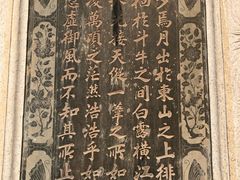 少焉月出於東山之上徘
徊於斗牛之間白露橫江
水光接天縱一葦之所如
凌萬頃之茫然浩浩乎如
馮虛御風而不知其所止